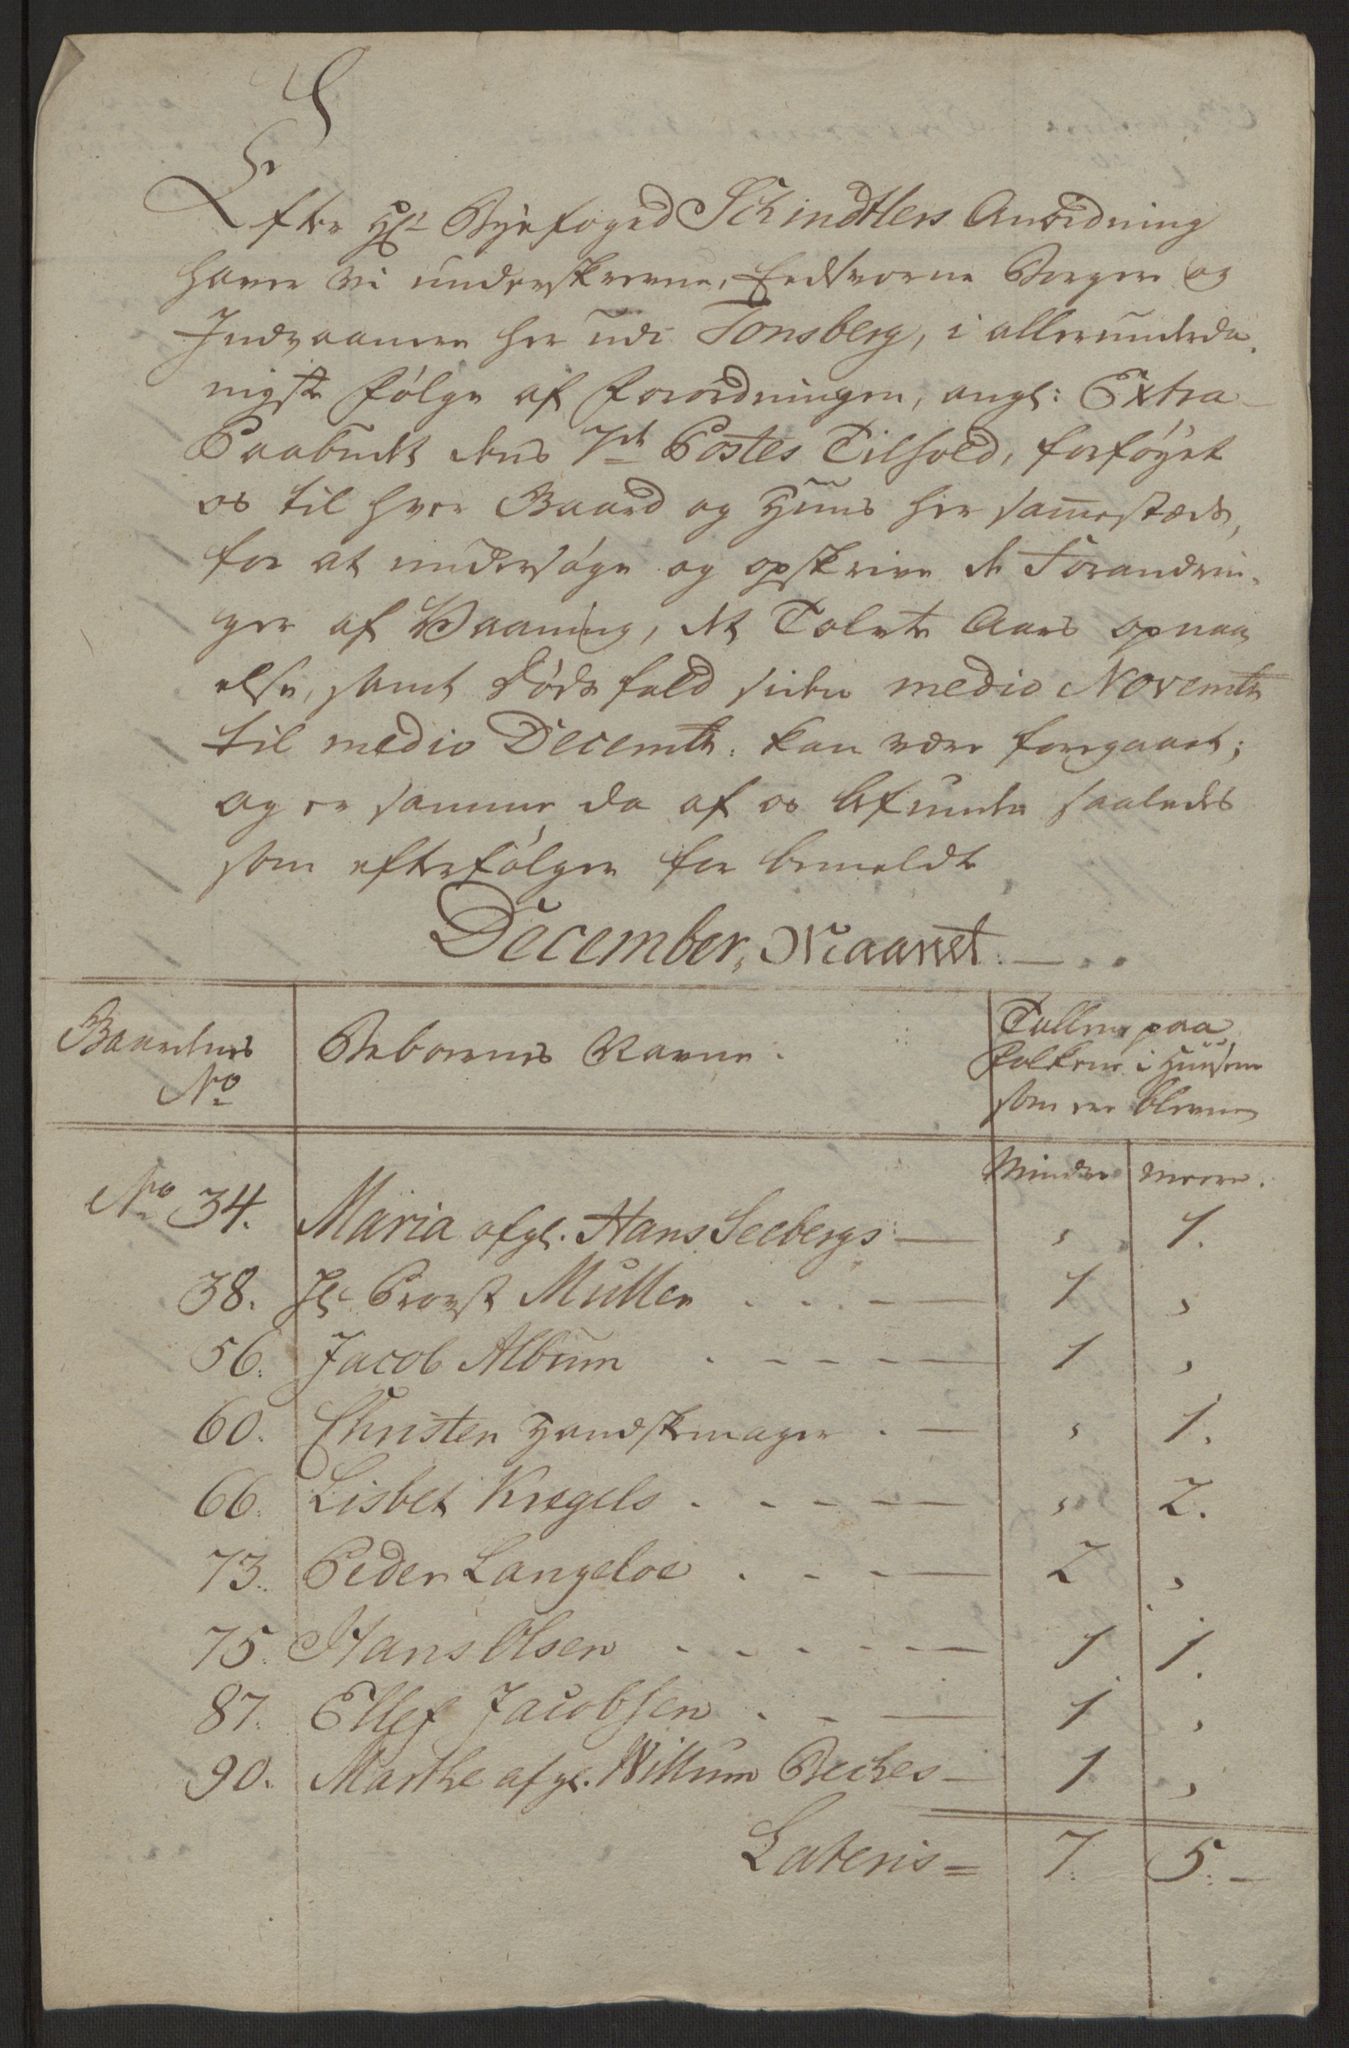 Efter Hr Byefoged Schindtlers Anordning
haver vi underskrevne, Eedsvorne Borgere og
Indvaanere her udi Tonsberg, i allerunderda-
nigste følge af Forordningen, angl: Extra-
Paabudt dens 7de Postes Tilhold, forføyet
os til hver Gaard og Huus her sammestæds,
for at undersøge og opskrive de Forandrin-
ger af Vaaning, det Tolvte Aars opnaa-
else, samt Dødsfald siden medio Novembr
til medio Decembr: kan være foregaaet;
og er samme da af os befunden saaledes
som efterfølger for bemeldte
December, Maanet.
Gaardenes
No
Beboernes Navne.
Tallene paa
Folkene i Huusene
som ere blevne
Mindre | meere.
No 34. Maria afgl. Hans Seebergs — " 1.
38. Hr Provst Muller . . . — 1 "
56. Jacob Album . - - - — 1 "
60. Christen Handskemager . — " 1.
66. Lisbet Kregels . - - - — " 2.
73. Peder Langeloe . - - — 2 "
75. Hans Olsen . - - - — 1 1.
87. Ellef Jacobsen . - — 1 "
90. Marthe afgl. Willum Beches — 1 "
Lateris = 7. 5. -